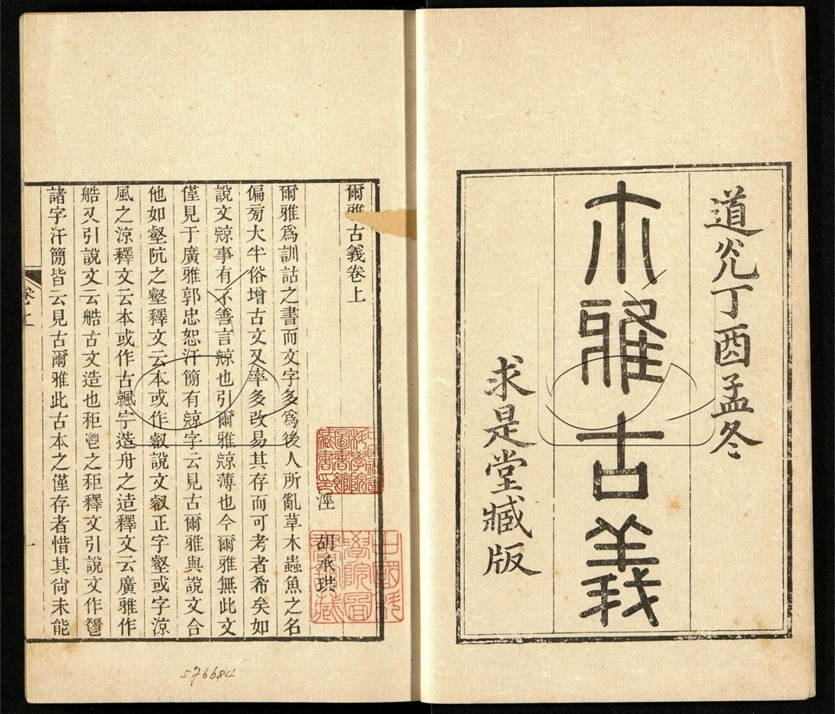 道光丁酉孟冬
尒雅古義
求是堂藏版
爾雅古義卷上
涇 胡承珙
爾雅爲訓詁之書而文字多爲後人所亂草木蟲魚之名
偏旁大半俗增古文又率多改易其存而可考者希矣如
說文䬅事有不善言䬅也引爾雅䬅薄也今爾雅無此文
僅見于廣雅郭忠恕汗簡有䬅字云見古爾雅與說文合
他如壑阬之壑釋文云本或作叡說文叡正字壑或字涼
風之涼釋文云本或作古飆字造舟之造釋文云廣雅作
艁又引說文云艁古文造也秬鬯之秬釋文引說文作𩰤
諸字汗簡皆云見古爾雅此古本之僅存者惜其尙未能
卷上
一
576684